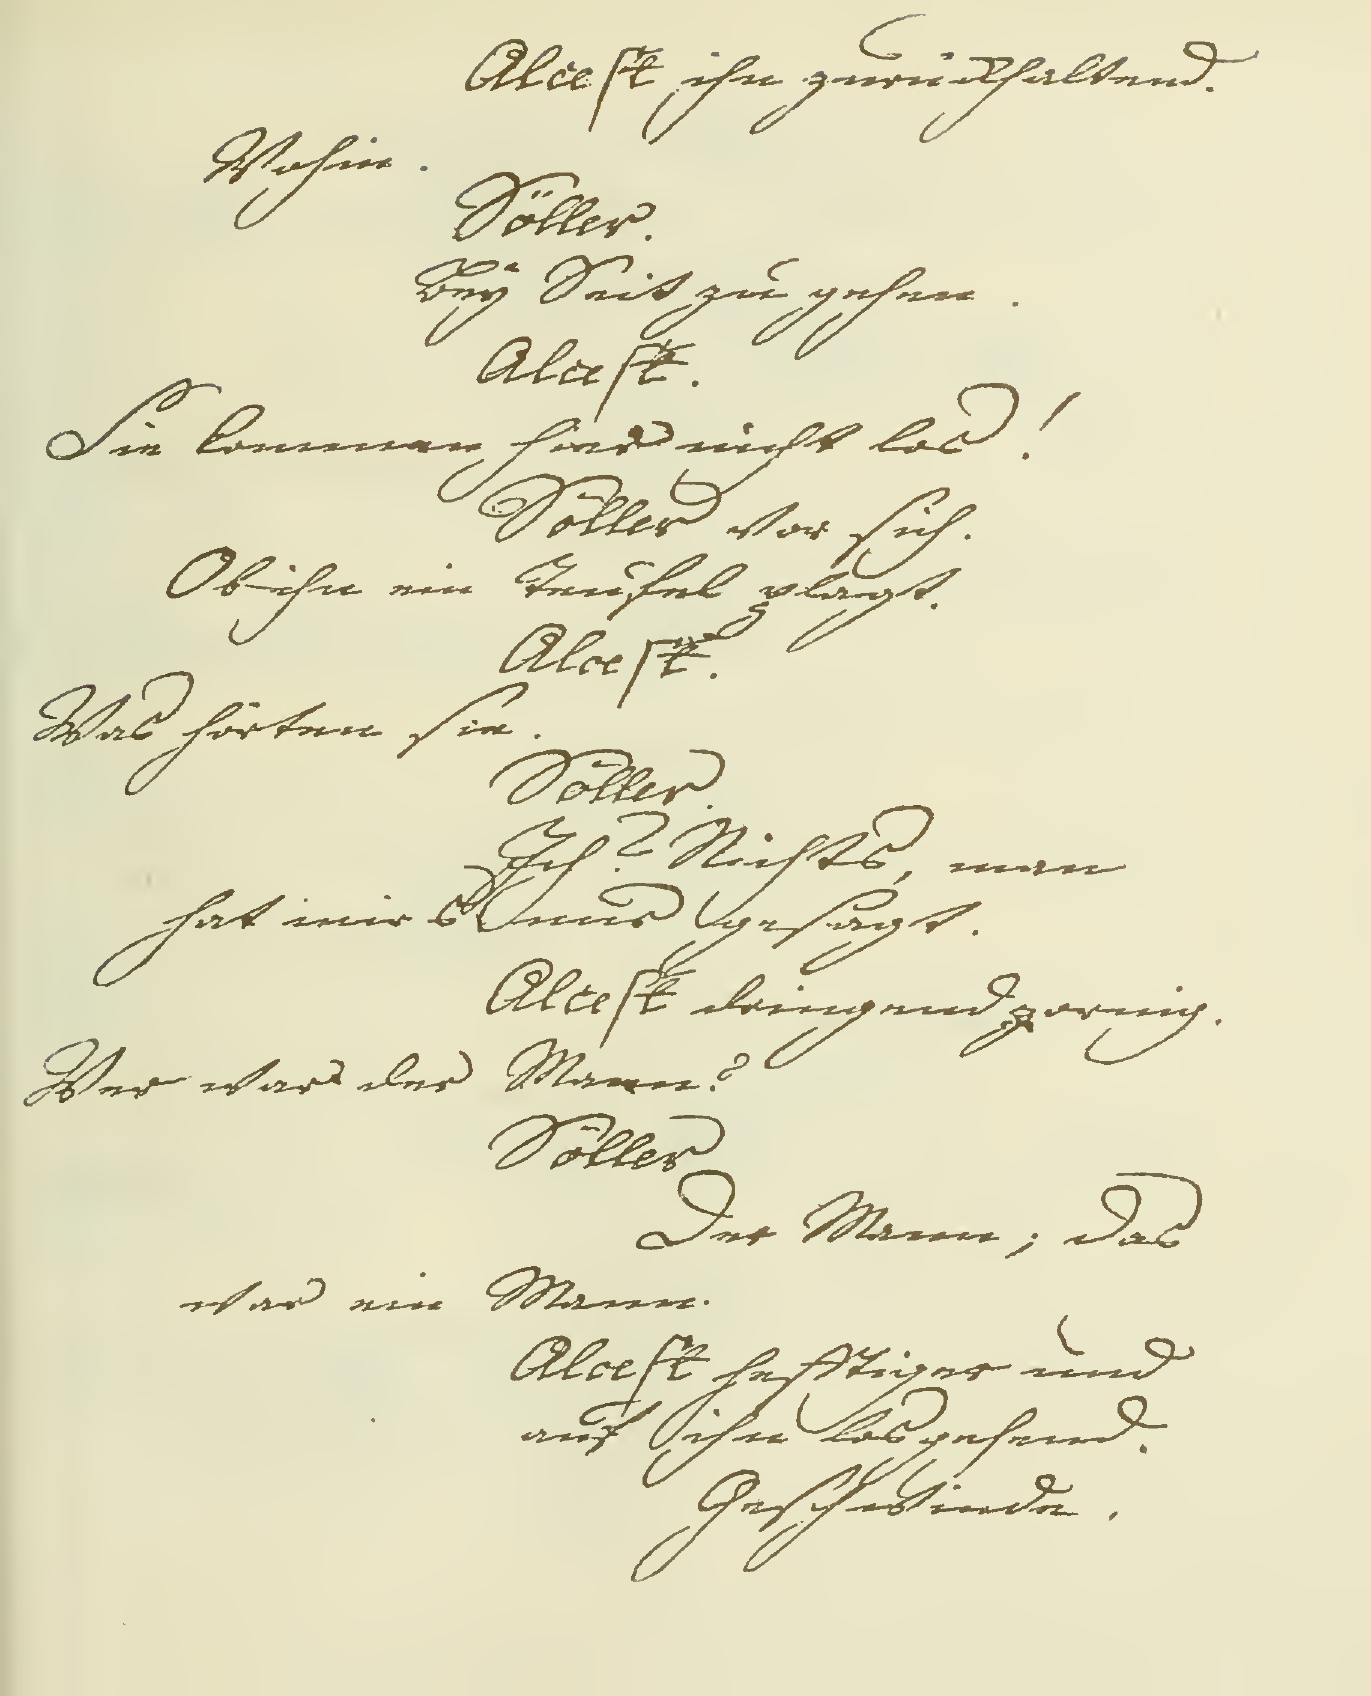 Alcest ihn zurückhaltend.
Wohin.
Söller.
Bey Seit zu gehen.
Alcest.
Sie kommen hier nicht los!
Söller vor sich.
Ob ihn ein Teufel plagt.
Alcest.
Was hörten sie.
Söller.
Ich? Nichts, man
hat mirs nur gesagt.
Alcest dringend zornig.
Wer war der Mann?
Söller
Der Mann; das
war ein Mann.
Alcest hefftiger und
auf ihn losgehend.
Geschwinde.